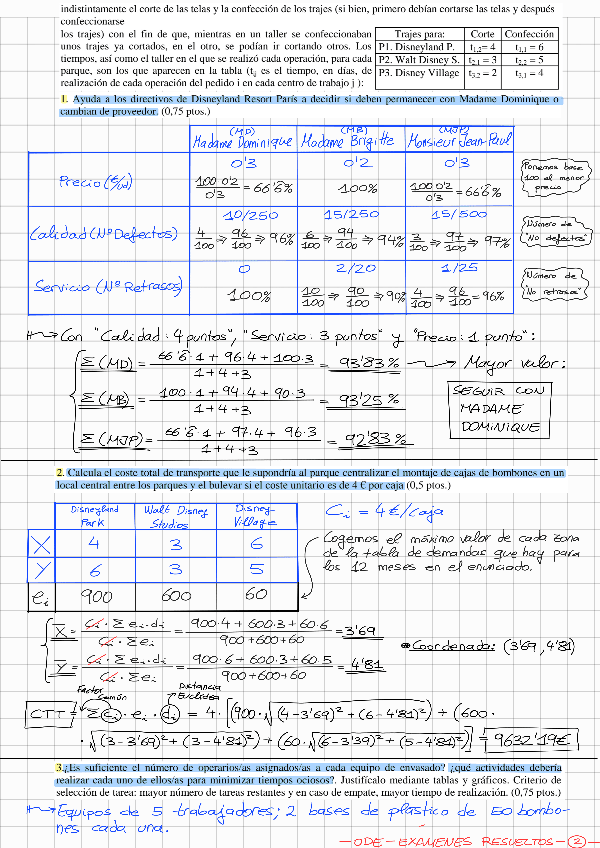 indistintamente el corte de las telas y la confección de los trajes (si bien, primero debían cortarse las telas y después
confeccionarse
los trajes) con el fin de que, mientras en un taller se confeccionaban
unos trajes ya cortados, en el otro, se podían ir cortando otros. Los
tiempos, así como el taller en el que se realizó cada operación, para cada
parque, son los que aparecen en la tabla (tij es el tiempo, en días, de
realización de cada operación del pedido i en cada centro de trabajo j ):
Trajes para: Corte Confección
P1. Disneyland P. t1,2= 4 t1,1 = 6
P2. Walt Disney S. t2,1 = 3 t2,2 = 5
P3. Disney Village t3,2 = 2 t3,1 = 4
1. Ayuda a los directivos de Disneyland Resort París a decidir si deben permanecer con Madame Dominique o
cambian de proveedor. (0,75 ptos.)
(MD) (MB) (MJP)
Madame Dominique Madame Brigitte Monsieur Jean-Paul
Precio (€/ud) 0'3 0'2 0'3
100·0'2/0'3 = 66'6̂% 100% 100·0'2/0'3 = 66'6̂%
Ponemos base
100 al menor
precio
Calidad (Nº Defectos) 10/250 15/250 15/500
4/100 ⇒ 96/100 ⇒ 96% 6/100 ⇒ 94/100 ⇒ 94% 3/100 ⇒ 97/100 ⇒ 97%
Número de
"No defectos"
Servicio (Nº Retrasos) 0 2/20 1/25
100% 10/100 ⇒ 90/100 ⇒ 90% 4/100 ⇒ 96/100 = 96%
Número de
"No retrasos"
Con "Calidad: 4 puntos", "Servicio: 3 puntos" y "Precio: 1 punto":
Σ (MD) = 66'6̂·1 + 96·4 + 100·3 / 1+4+3 = 93'83% → Mayor valor:
Σ (MB) = 100·1 + 94·4 + 90·3 / 1+4+3 = 93'25%
Σ (MJP) = 66'6̂·1 + 97·4 + 96·3 / 1+4+3 = 92'83%
SEGUIR CON
MADAME
DOMINIQUE
2. Calcula el coste total de transporte que le supondría al parque centralizar el montaje de cajas de bombones en un
local central entre los parques y el bulevar si el coste unitario es de 4 € por caja (0,5 ptos.)
Disneyland Park Walt Disney Studios Disney Village
X 4 3 6
Y 6 3 5
ei 900 600 60
Ci = 4€/caja
Cogemos el máximo valor de cada zona
de la tabla de demandas que hay para
los 12 meses en el enunciado.
X̄ = Ci·Σ ei·di / Ci·Σ ei = 900·4 + 600·3 + 60·6 / 900+600+60 = 3'69
Ȳ = Ci·Σ ei·di / Ci·Σ ei = 900·6 + 600·3 + 60·5 / 900+600+60 = 4'81
Coordenada: (3'69, 4'81)
Factor común Distancia Euclídea
CTT = Σ Ci · ei · di = 4 · [(900·√(4-3'69)² + (6-4'81)²) + (600·
·√(3-3'69)² + (3-4'81)²) + (60·√(6-3'39)² + (5-4'81)²)] = 9632'19€
3.¿Es suficiente el número de operarios/as asignados/as a cada equipo de envasado? ¿qué actividades debería
realizar cada uno de ellos/as para minimizar tiempos ociosos?. Justifícalo mediante tablas y gráficos. Criterio de
selección de tarea: mayor número de tareas restantes y en caso de empate, mayor tiempo de realización. (0,75 ptos.)
Equipos de 5 trabajadores; 2 bases de plástico de 50 bombo-
nes cada una.
— ODE — EXAMENES RESUELTOS — 2 —